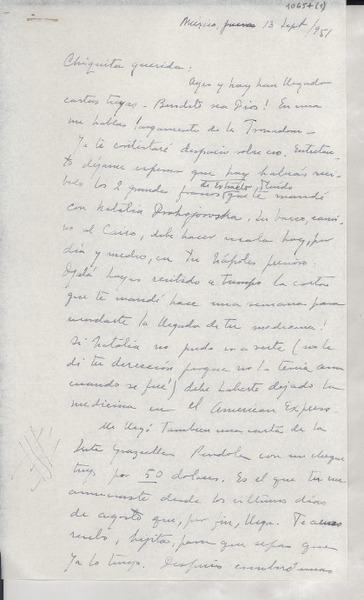 1065+(1)
Mexico, jueves 13 Sept/951
Chiquita querida:
Ayer y hoy han llegado
cartas tuyas. Bendito sea Dios! En una
me hablas largamente de la
Ya te contestaré despacio sobre eso. Entretan-
to déjame esperar que hoy habrás reci-
bido los 2 grandes frascos de que te mandé
con Natalia Su barco, cami-
no al Cairo, debe hacer escala hoy, por
día y medio, en Tu Nápoles precioso.
Ojalá hayas recibido a tiempo la carta
que te mandé hace una semana para
anunciarte la llegada de tu medicina!
Si Natalia no pudo ir a verte (no le
di tu dirección porque no la tenía aun
cuando se fué) debe haberte dejado la
medicina en el American Express.
Me llegó tambien una carta de la
Srta Graziella Pendola con un cheque
tuyo por 50 dolares. Es el que tu me
anunciaste desde los ultimos días
de agosto que, por fin, llega. Te acuso
recibo, hijita, para que sepas que
ya lo tengo. Después